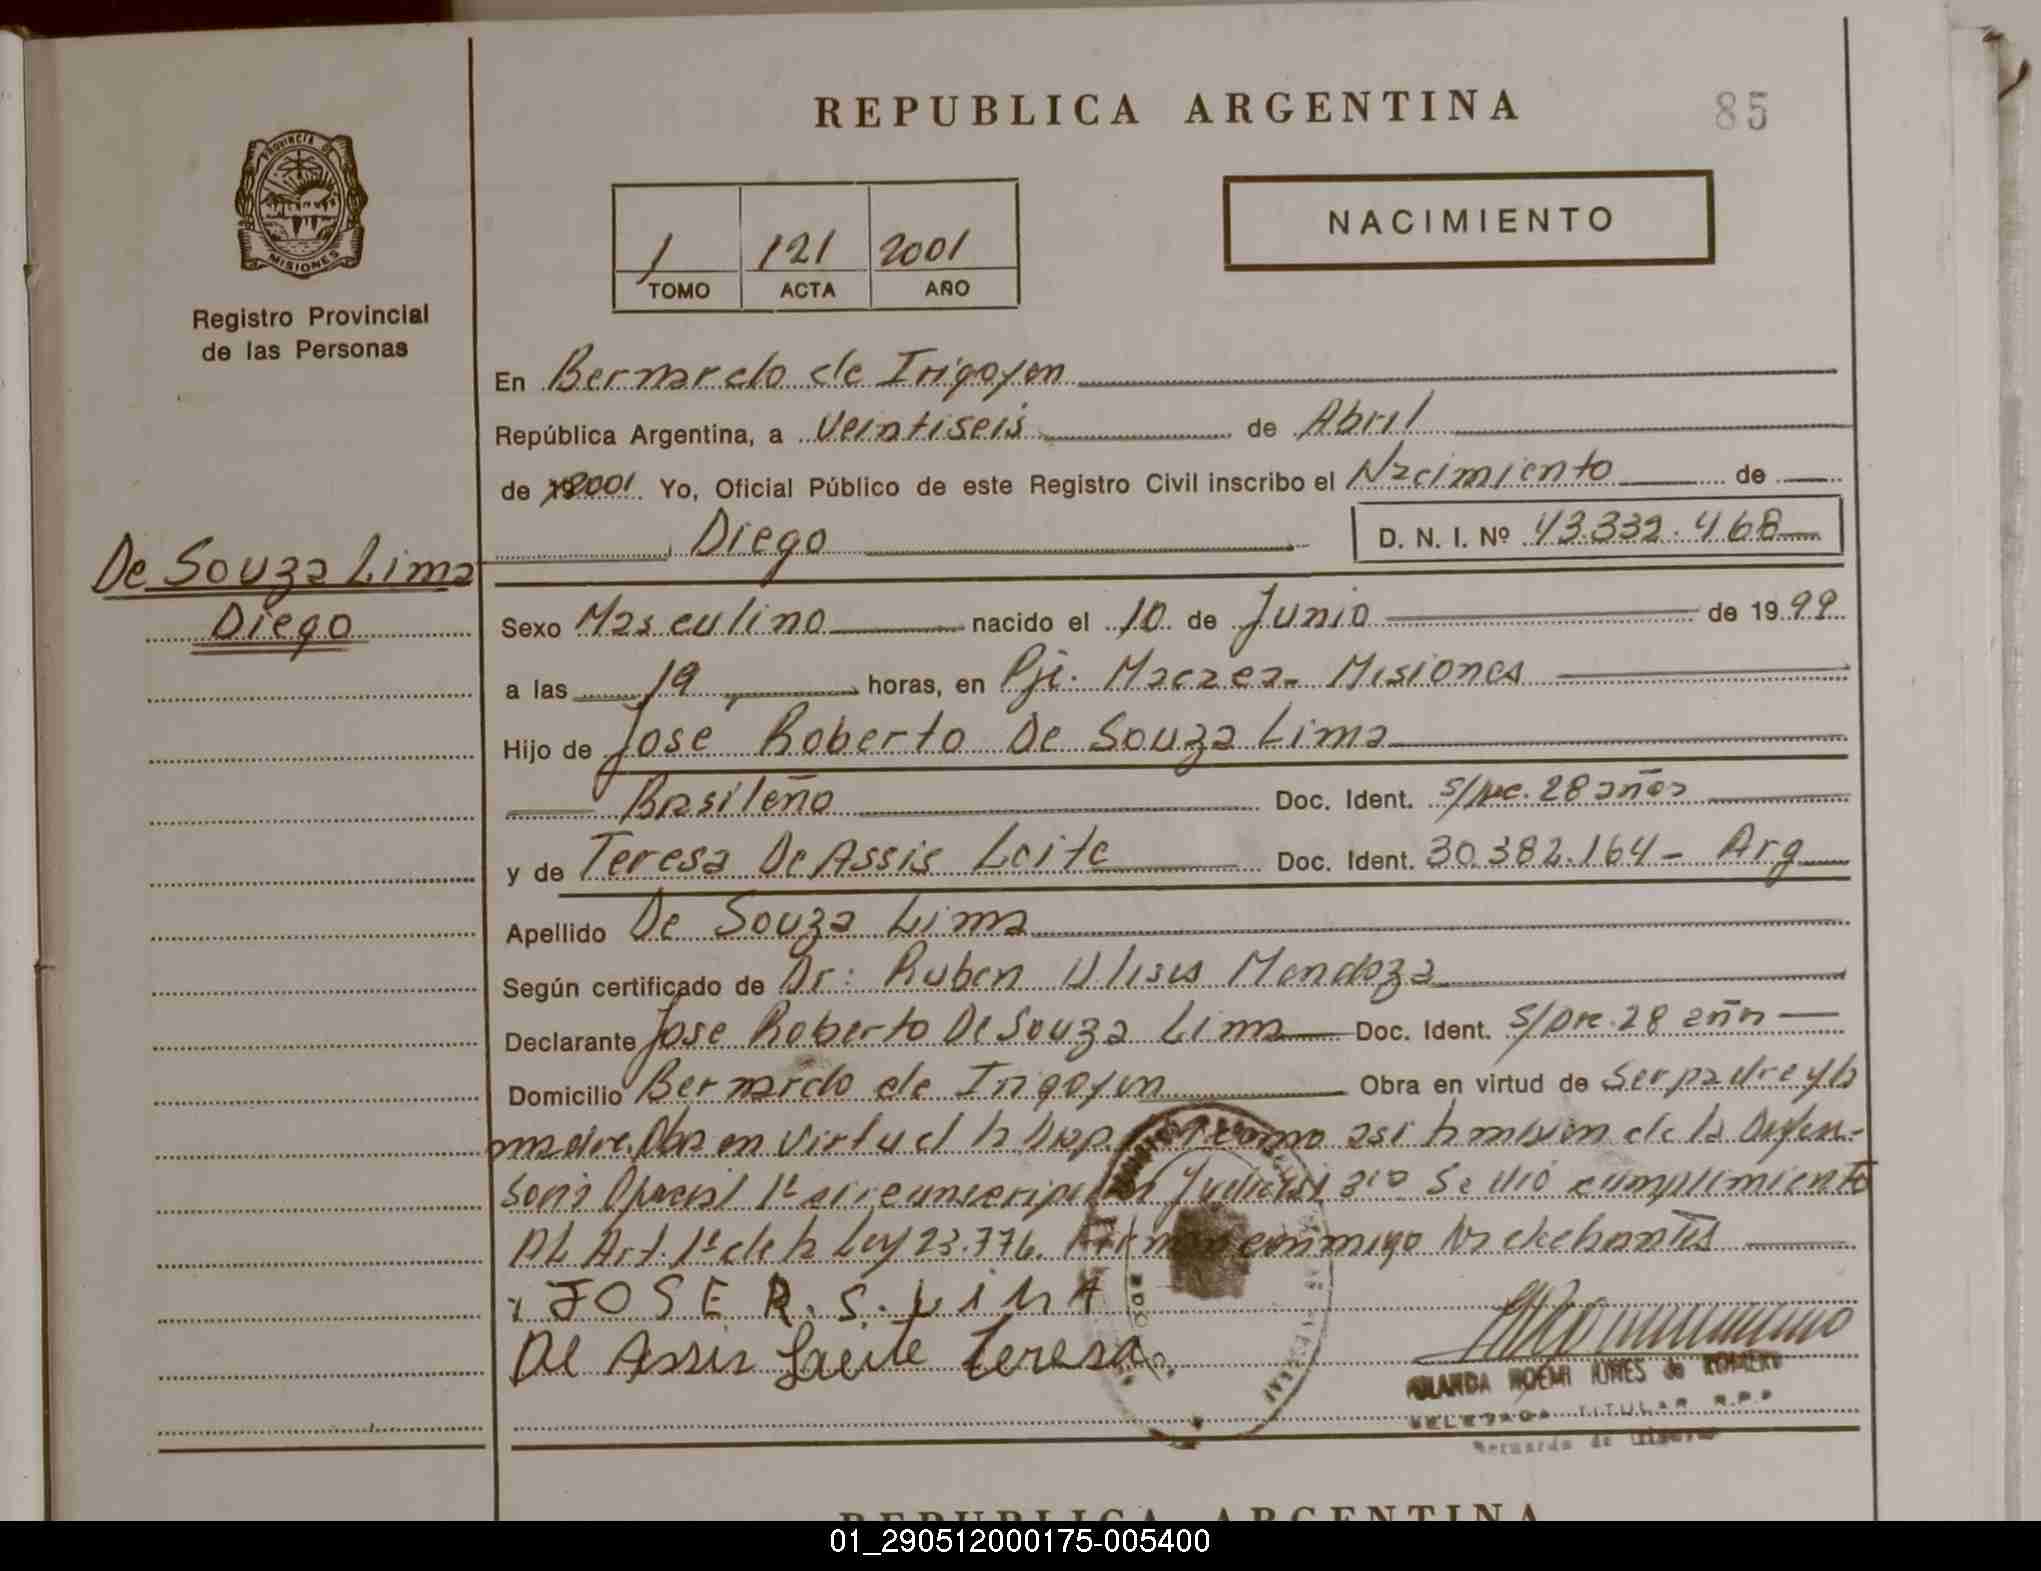 REPUBLICA ARGENTINA
85
PROVINCIA DE
MISIONES
Registro Provincial
de las Personas
1 121 2001
TOMO ACTA AÑO
NACIMIENTO
En Bernardo de Irigoyen
República Argentina, a Veintiseis de Abril
de 2001 Yo, Oficial Público de este Registro Civil inscribo el Nacimiento de
Diego D. N. I. Nº 43.332.468
De Souza Lima
Diego
Sexo Masculino nacido el 10 de Junio de 1999
a las 19 horas, en Pje. Macaca Misiones
Hijo de José Roberto De Souza Lima
Brasileño Doc. Ident. 28 años
y de Teresa De Assis Leite Doc. Ident. 30.382.164 - Arg
Apellido De Souza Lima
Según certificado de Dr: Ruben Ulises Mendoza
Declarante Jose Roberto De Souza Lima Doc. Ident. 28 años
Domicilio Bernardo de Irigoyen Obra en virtud de ser padre y la
madre. Obra en virtud la como asi la de la Defen-
soria Oficial 1ª circunscripción Judicial Se dió cumplimiento
Al Art. 1º de la Ley 23.776. Firman conmigo los
JOSE R. S. LIMA
De Assis Leite Teresa
NOEMI de ROMERO
DELEGADA TITULAR R.P.P
Bernardo de Irigoyen
REPUBLICA ARGENTINA
01_290512000175-005400